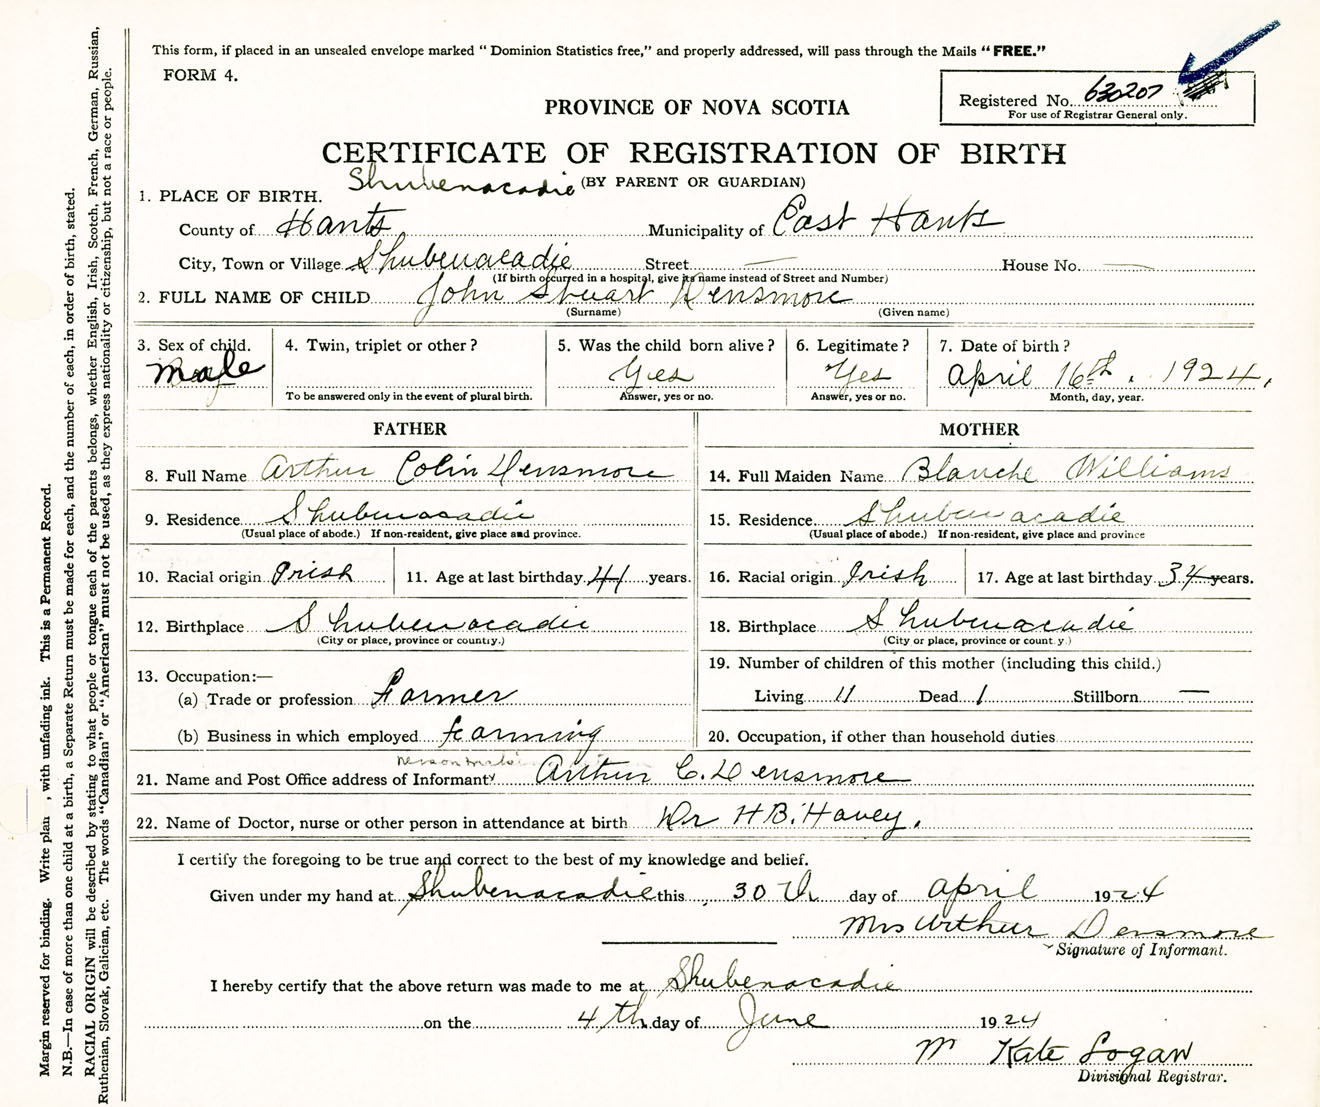 This form, if placed in an unsealed envelope marked “ Dominion Statistics free,” and properly addressed, will pass through the Mails “ FREE.”
FORM 4.
PROVINCE OF NOVA SCOTIA
Registered No. 630207
For use of Registrar General only.
CERTIFICATE OF REGISTRATION OF BIRTH
Shubenacadie (BY PARENT OR GUARDIAN)
1. PLACE OF BIRTH.
County of Hants Municipality of East Hants
City, Town or Village Shubenacadie Street — House No. —
(If birth occurred in a hospital, give its name instead of Street and Number)
2. FULL NAME OF CHILD John Stuart Densmore
(Surname) (Given name)
3. Sex of child. 4. Twin, triplet or other ? 5. Was the child born alive ? 6. Legitimate ? 7. Date of birth ?
Male Yes Yes April 16th, 1924,
To be answered only in the event of plural birth. Answer, yes or no. Answer, yes or no. Month, day, year.
FATHER MOTHER
8. Full Name Arthur Colin Densmore 14. Full Maiden Name Blanche Williams
9. Residence Shubenacadie 15. Residence Shubenacadie
(Usual place of abode.) If non-resident, give place and province. (Usual place of abode.) If non-resident, give place and province
10. Racial origin Irish 11. Age at last birthday 41 years. 16. Racial origin Irish 17. Age at last birthday 34 years.
12. Birthplace Shubenacadie 18. Birthplace Shubenacadie
(City or place, province or country.) (City or place, province or count y.)
13. Occupation:— 19. Number of children of this mother (including this child.)
(a) Trade or profession Farmer Living 11 Dead 1 Stillborn —
(b) Business in which employed farming 20. Occupation, if other than household duties
21. Name and Post Office address of Informant Arthur C. Densmore
22. Name of Doctor, nurse or other person in attendance at birth Dr H.B. Havey.
I certify the foregoing to be true and correct to the best of my knowledge and belief.
Given under my hand at Shubenacadie this 30th day of April 1924
Mrs Arthur Densmore
Signature of Informant.
I hereby certify that the above return was made to me at Shubenacadie
on the 4th day of June 1924
Kate Logan
Divisional Registrar.
Margin reserved for binding. Write plai , with unfading ink. This is a Permanent Record.
N.B.—In case of more than one child at a birth, a Separate Return must be made for each, and the number of each, in order of birth, stated.
RACIAL ORIGIN will be described by stating to what people or tongue each of the parents belongs, whether English, Irish, Scotch, French, German, Russian,
Ruthenian, Slovak, Galician, etc. The words “Canadian” or “American” must not be used, as they express nationality or citizenship, but not a race or people.